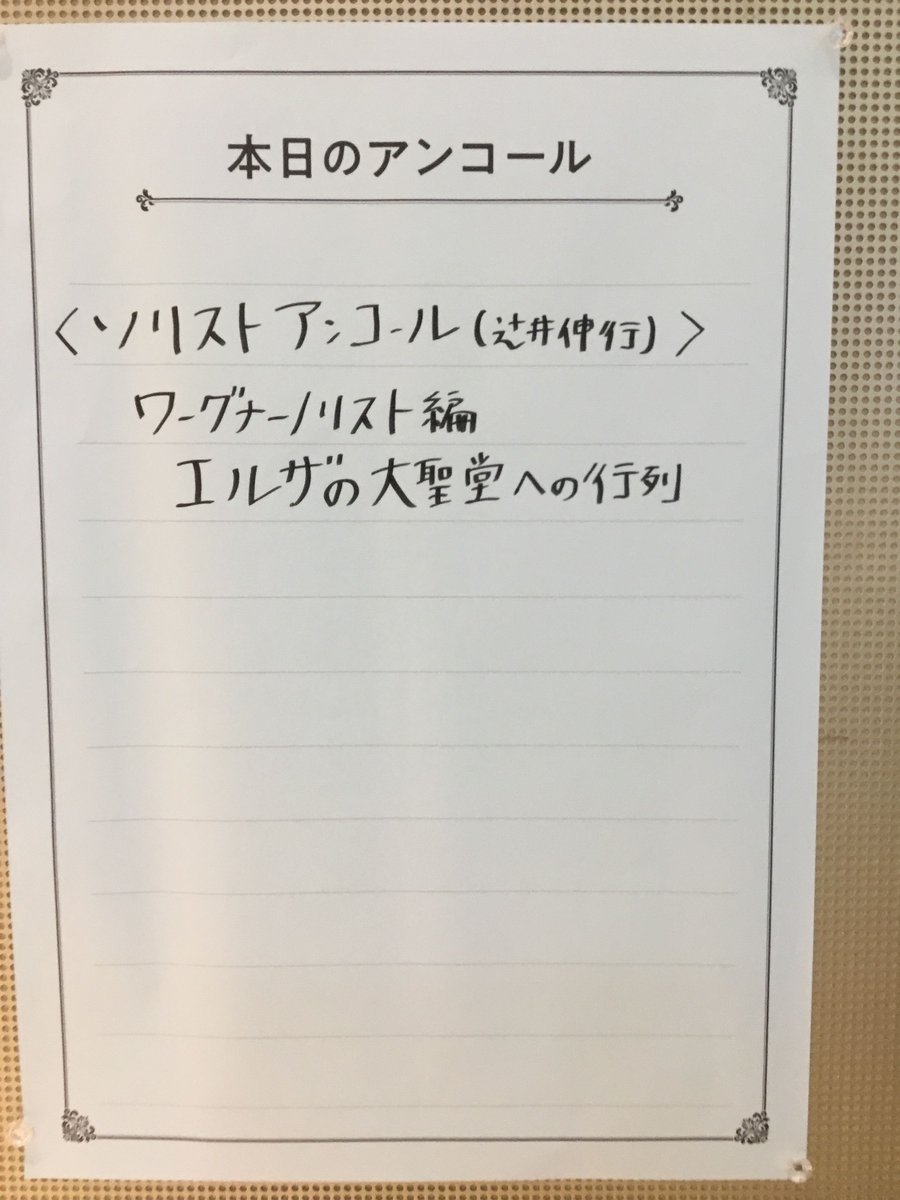 本日のアンコール
〈ソリストアンコール(辻井伸行)〉
ワーグナー/リスト編
エルザの大聖堂への行列